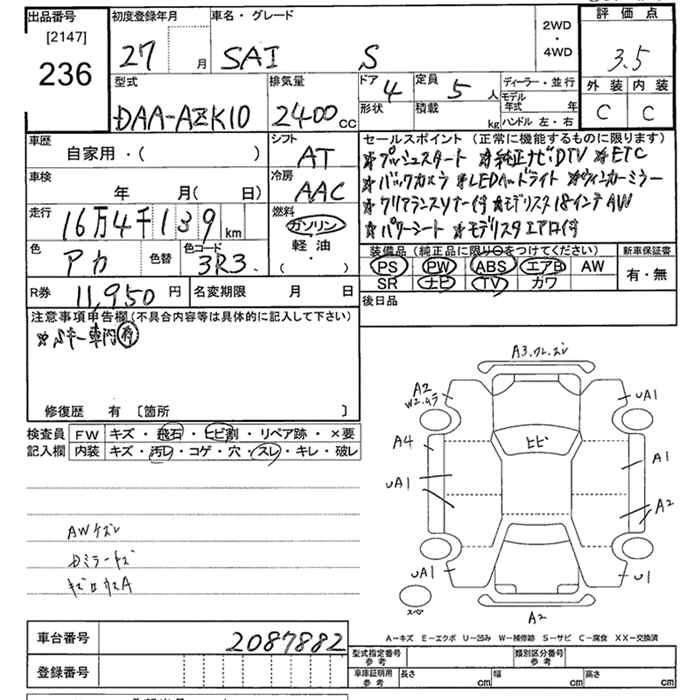 出品番号 [2147] 236
初度登録年月 27 月
車名・グレード SAI S
2WD・4WD
評価点 3.5
外装 内装
C C
型式 DAA-AZK10
排気量 2400 CC
ドア 4
形状
定員 5 人
積載 kg
ディーラー・並行
モデル年式 年
ハンドル 左・右
車歴 自家用・( )
シフト AT
車検 年 月( 日)
冷房 AAC
走行 16万4千139 km
燃料 ガソリン
軽油
( ・ )
色 アカ 色替
色コード 3R3
R券 11,950 円
名変期限 月 日
セールスポイント (正常に機能するものに限ります)
☆プッシュスタート ☆純正ナビDTV ☆ETC
☆バックカメラ ☆LEDヘッドライト ☆ウィンカーミラー
☆クリアランスソナー付 ☆モデリスタ18インチAW
☆パワーシート ☆モデリスタエアロ付
装備品 (純正品に限り○をつけてください)
PS PW ABS エアB AW
SR ナビ TV カワ
新車保証書
有・無
後日品
注意事項申告欄(不具合内容等は具体的に記入して下さい)
☆Sキー専門 有
修復歴 有 〔箇所 〕
検査員記入欄
FW キズ・飛石・ヒビ割・リペア跡・×要
内装 キズ・汚レ・コゲ・穴・スレ・キレ・破レ
AWキズ
Dミラーキズ
A3.ワレ.ズレ
A2
W2.ムラ
UA1
A4
ヒビ
A1
UA1
A2
UA1
U1
スペア
A2
A-キズ E-エクボ U-凹み W-補修跡 S-サビ C-腐食 XX-交換済
車台番号 2087882
登録番号
型式指定番号 参考
類別区分番号 参考
車庫証明用 参考
長さ cm 幅 cm 高さ cm